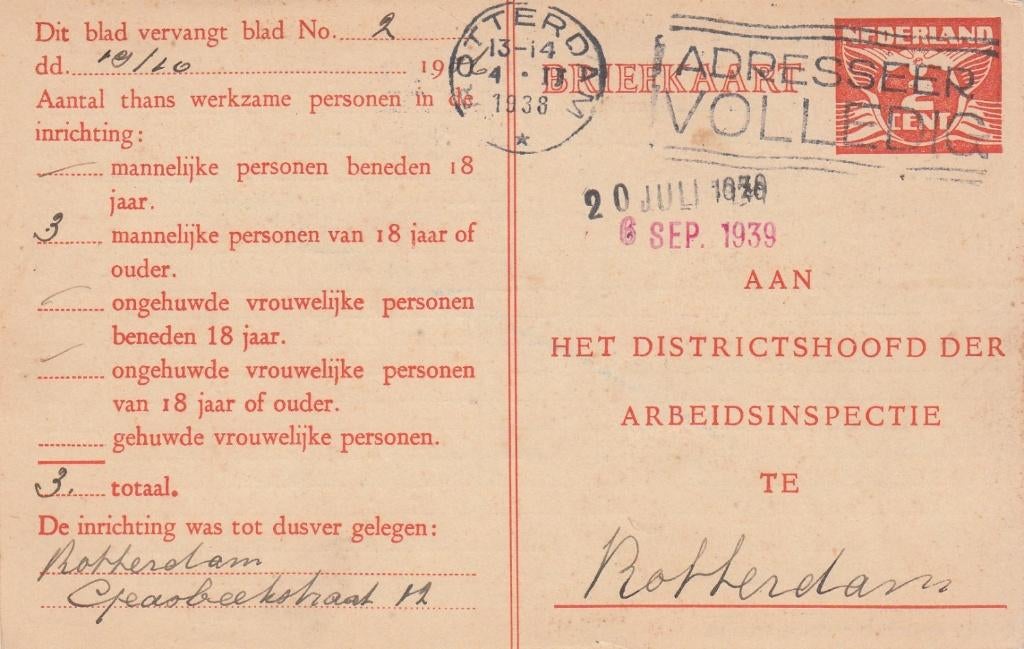 Dit blad vervangt blad No. 2
dd. 19/10 19
Aantal thans werkzame personen in de
inrichting:
mannelijke personen beneden 18
jaar.
3 mannelijke personen van 18 jaar of
ouder.
ongehuwde vrouwelijke personen
beneden 18 jaar.
ongehuwde vrouwelijke personen
van 18 jaar of ouder.
gehuwde vrouwelijke personen.
3. totaal.
De inrichting was tot dusver gelegen:
Rotterdam
12
ROTTERDAM
13-14
4
1938
BRIEFKAART
ADRESSEER
VOLLEDIG
NEDERLAND
2
CENT
20 JULI
6 SEP. 1939
AAN
HET DISTRICTSHOOFD DER
ARBEIDSINSPECTIE
TE
Rotterdam